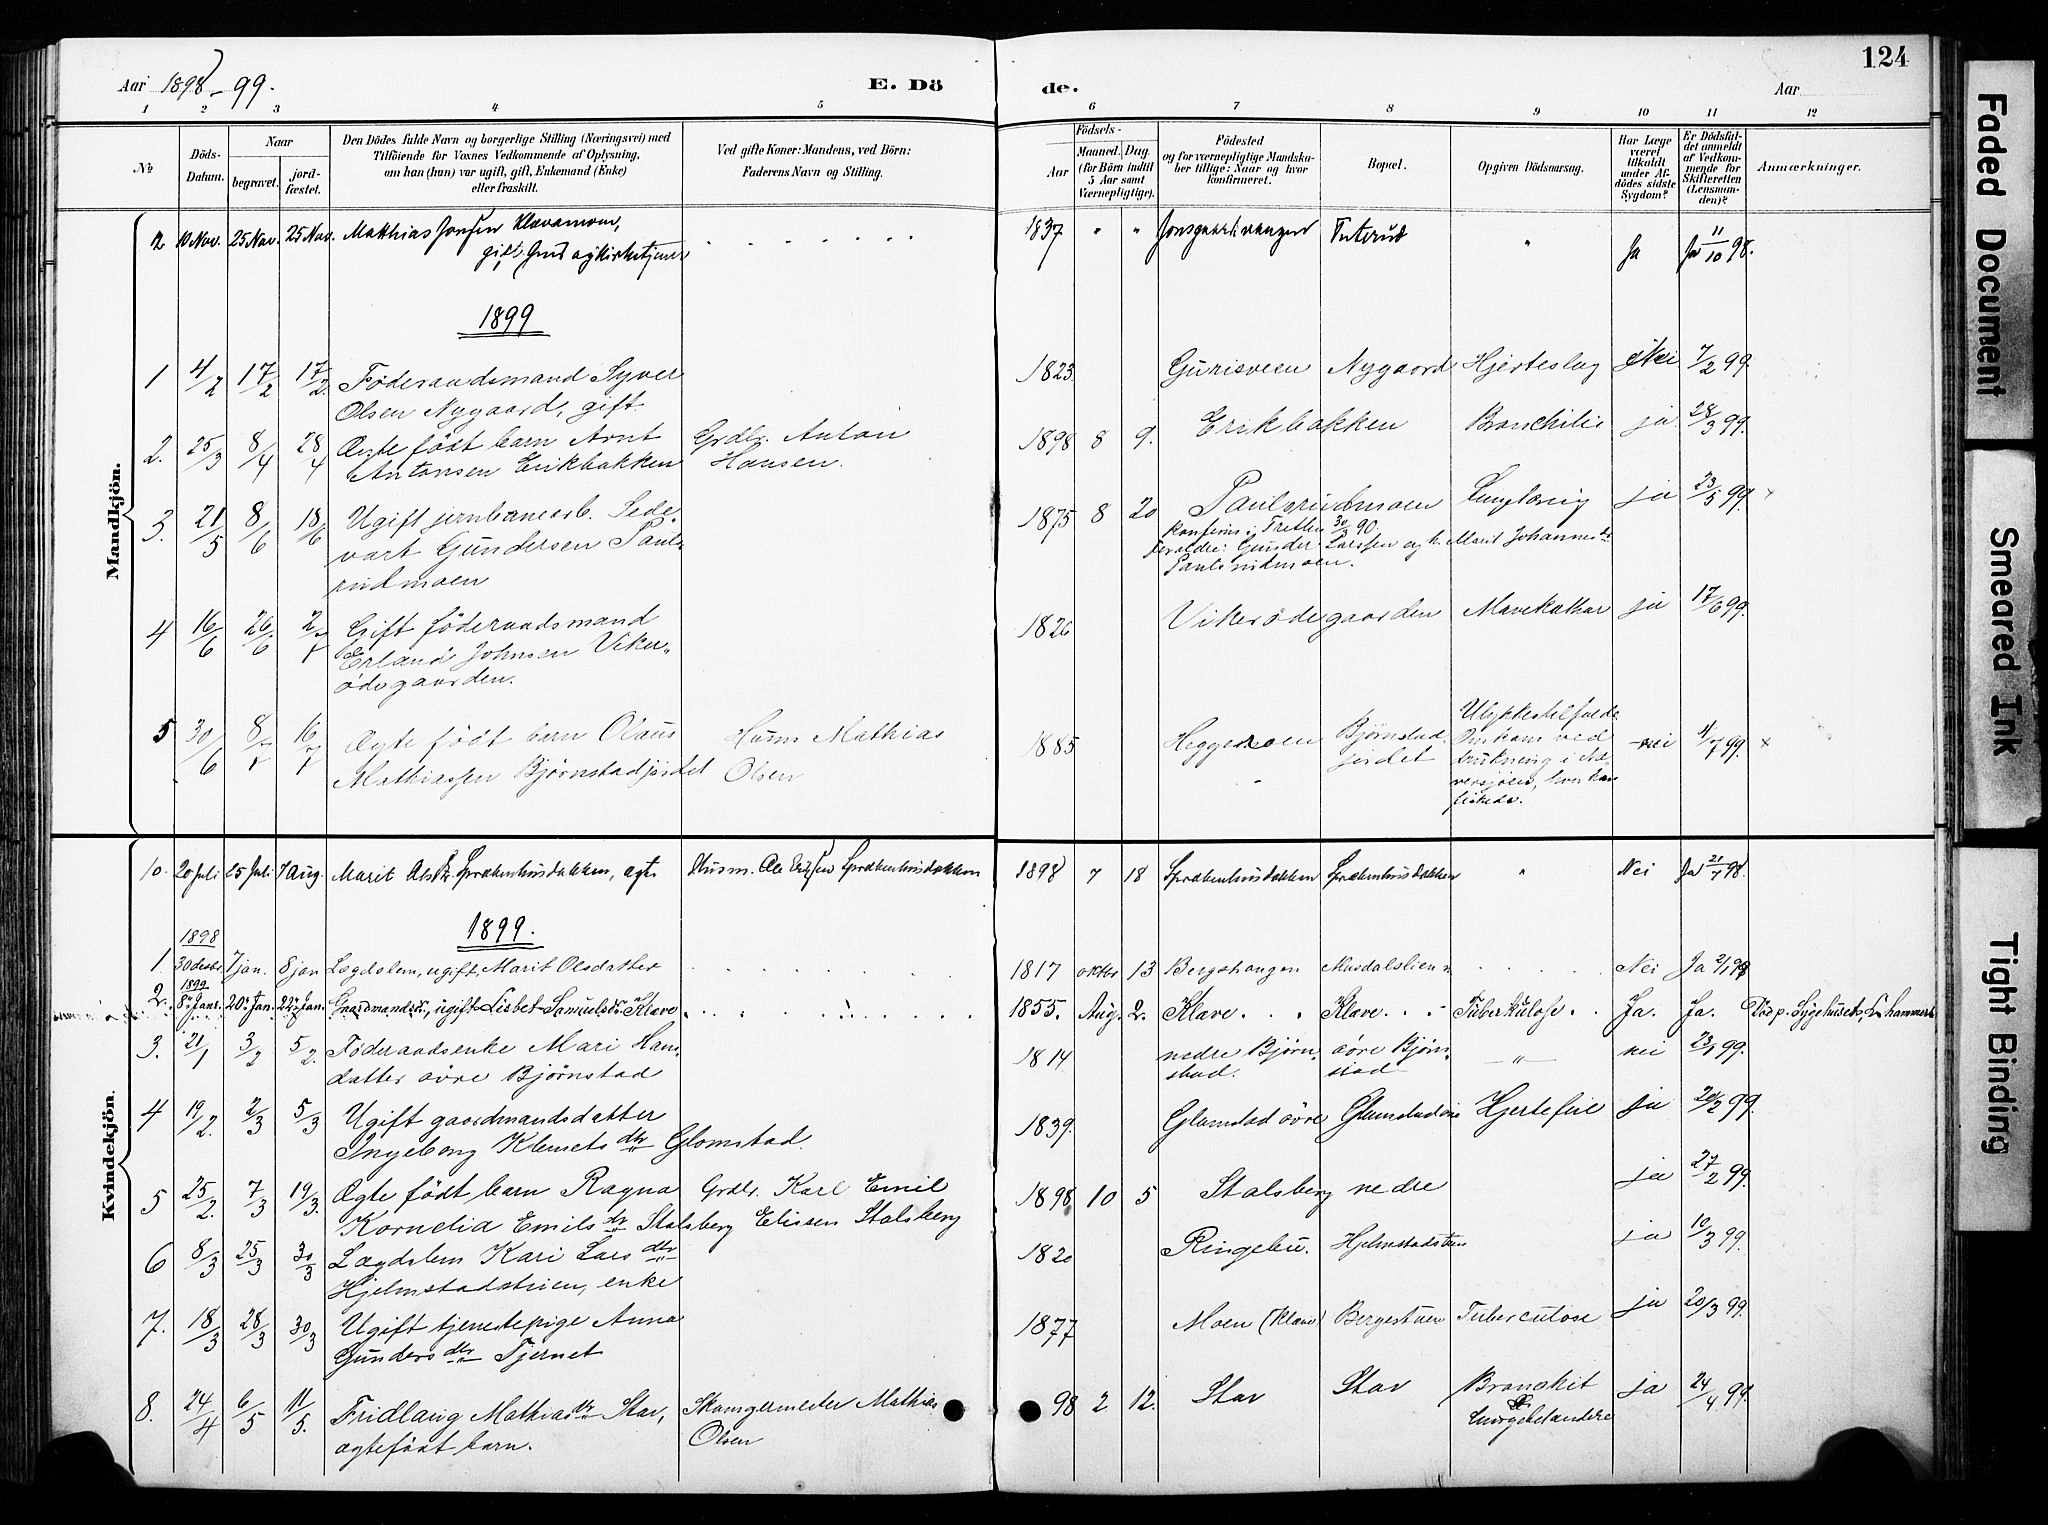 Aar 1898-99.
E. Döde.
Aar
124
1 2 3 4 5 6 7 8 9 10 11 12
No
Döds-Datum.
Naar
begravet.
jordfæstet.
Den Dödes fulde Navn og borgerlige Stilling (Næringsvei) med
Tilföiende for Voxnes Vedkommende af Oplysning,
om han (hun) var ugift, gift, Enkemand (Enke)
eller fraskilt.
Ved gifte Koner: Mandens, ved Börn:
Faderens Navn og Stilling.
Födsels-
Aar
Maaned. Dag.
(for Börn indtil
5 Aar samt
Værnepligtige).
Födested
og for værnepligtige Mandska-
ber tillige: Naar og hvor
konfirmeret.
Bopæl.
Opgiven Dödsaarsag.
Har Læge
været
tilkaldt
under Af-
dödes sidste
Sygdom?
Er Dödsfal-
det anmeldt
af Vedkom-
mende for
Skifteretten
(Lensman-
den)?
Anmærkninger.
Mandkjön.
2 10 Nov. 25 Nov. 25 Nov. Mathias Jonsen Klavamoen, 1837 " " Jonsgaardsvangen " Ja Ja 11/10 98.
gift,
1899
1 4/2 17/2 17/2. Föderaadsmand Syver 1823 Gurisveen Nygaard Hjerteslag Nei 7/2 99.
Olsen Nygaard, gift.
2. 25/3 8/4 28/4 Ægte födt barn Arnt Grdbr. Anton 1898 8 9. Erikbakken Bronchitis ja 28/3 99.
Antonsen Erikbakken Hansen.
3. 21/5 8/6 18/6 Ugift jernbanearb. Sede- 1875 8 20 Paulsrudmoen ja 23/5 99.
vart Gundersen Pauls- konfirm. i Tretten 30/3 90.
rudmoen forældre: Gunder Larssen og h. Marit Johannesdr
Paulsrudmoen.
4 16/6 26/6 2/7 Gift föderaadsmand 1826 Vikerödegaarden Mavekatar ja 17/6 99.
Erland Johnsen Viker-
ödegaarden.
5 30/6 8/7 16/7 Ægte födt barn Olaus Husm Mathias 1885 Heggemoen Björnstad- Ulykkestilfælde nei 4/7 99. x
Mathiassen Björnstadjordet Olsen " jordet Omkom ved
drukning i
versjöen, hvor han
fiskede.
Kvindekjön.
10. 20 Juli 25 Juli 7 Aug. Marit Olsdr. Sprækenhusbakken, ægte Husm. Ole Eriksen Sprækenhusbakken 1898 7 18 Sprækenhusbakken Sprækenhusbakken " Nei Ja 21/7 98.
1899.
1898
1. 30 decbr. 7 jan. 8 jan Lægdslem, ugift, Marit Olsdatter 1817 oktbr 13 Bergshaugen Musdalslien Nei Ja 2/1 99
1899
2. 8de Jan. 20de Jan. 22de Jan. Gaardmandsdr., ugift Lisbet Samuelsdr. Klave 1855. Aug. 2. Klave Klave Tuberkulose Ja. Ja. Död p. Sygehuset, L.hammer
3. 21/1 3/2 5/2. Föderaadsenke Mari Hans- 1814 nedre Björn- övre Björn- " nei 23/1 99.
datter övre Björnstad stad. stad
4 19/2. 2/3 5/3 Ugift gaardmandsdatter 1839. Glomstad övre Glomstad övre Hjertefeil ja 20/2 99.
Ingeborg Klemetsdtr Glomstad.
5 25/2. 7/3 19/3. Ægte födt barn Ragna Grdbr. Karl Emil 1898 10 5 Stalsberg nedre ja 27/2 99.
Kornelia Emilsdtr Stalsberg Elissen Stalsberg
6 8/3 25/3 30/3 Lægdslem Kari Larsdtr 1820 Ringebu. Hjelmstadstuen ja 10/3 99.
Hjelmstadstuen, enke
7. 18/3 28/3 30/3 Ugift tjenestepige Anna 1877 Moen (Klave) Bergestuen Tuberculose ja 20/3 99.
Gundersdtr Tjernet
8. 24/4 6/5 11/5. Fridlaug Mathiasdtr Stav, Skomagermester Mathias 98 2 12. Stav Stav Bronchit ja 24/4 99.
ægtefödt barn. Olsen &
Faded Document
Smeared Ink
Tight Binding